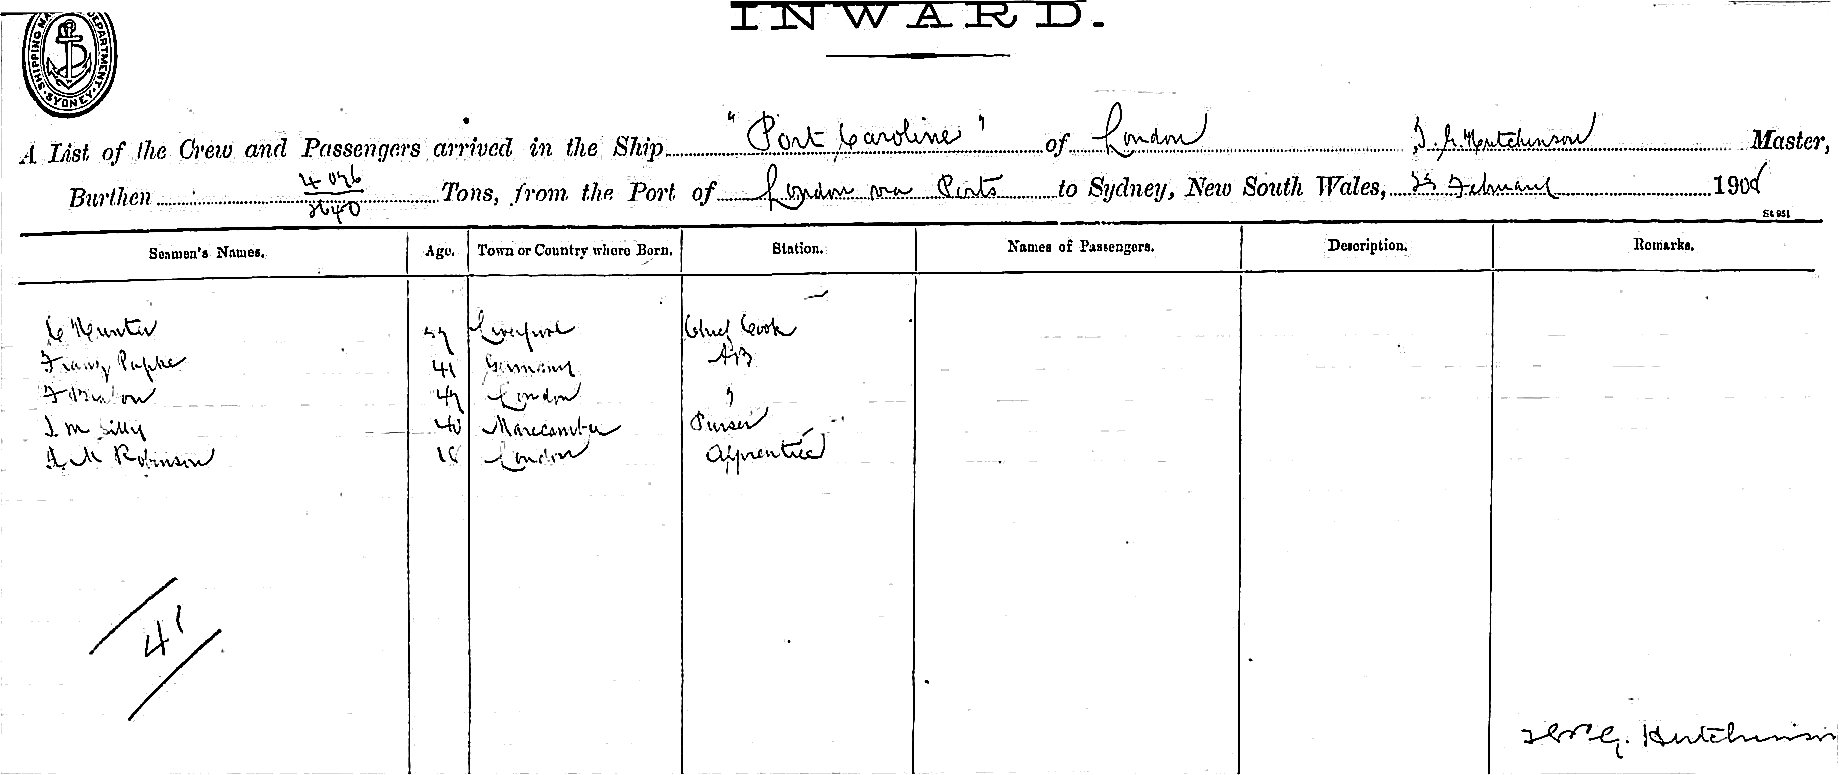 INWARD.
SHIPPING MASTER'S DEPARTMENT. SYDNEY
A List of the Crew and Passengers arrived in the Ship "Port Caroline" of London Hutchinson Master,
Burthen 4076/2640 Tons, from the Port of London via Ports to Sydney, New South Wales, February 190
St 951
Seamen's Names. Age. Town or Country where Born. Station. Names of Passengers. Description. Remarks.
C Hunter Liverpool Chief Cook
Franz Papke 41 Germany AB
London "
40 Purser
Robinson 18 London Apprentice
41
G. Hutchinson